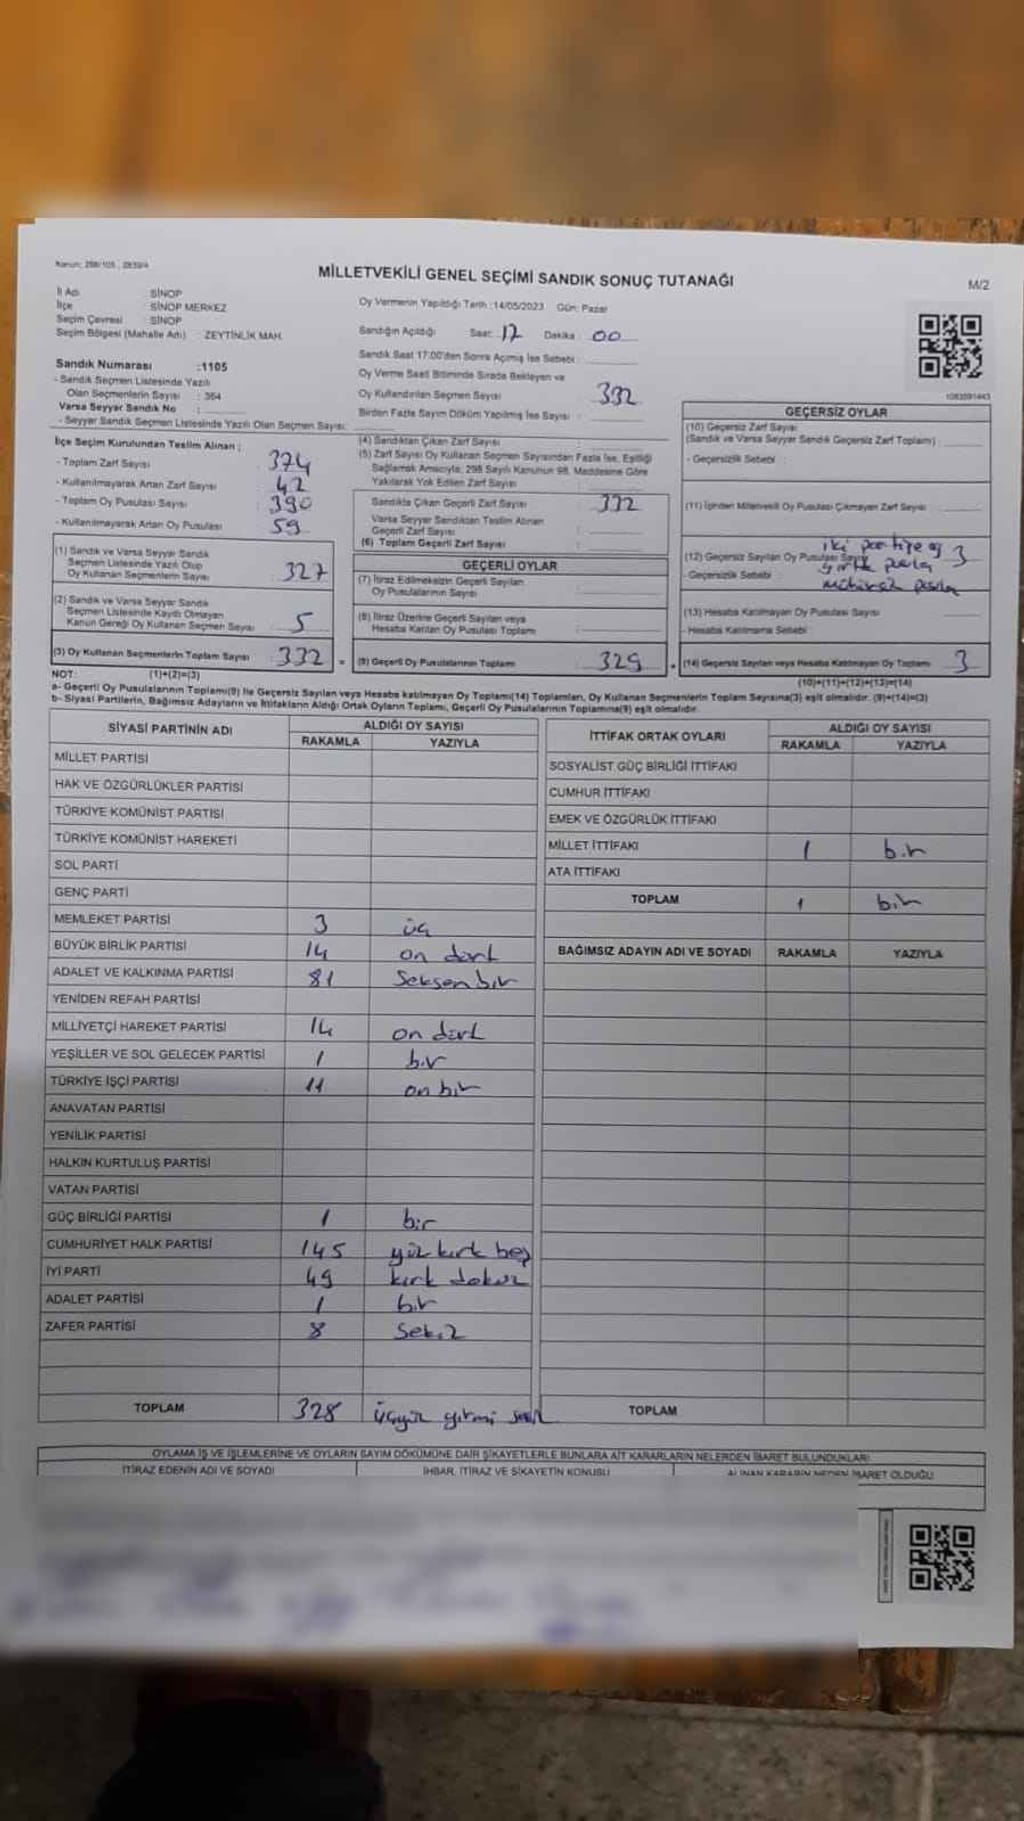 Kanun: 298/105, 2839/4
MİLLETVEKİLİ GENEL SEÇİMİ SANDIK SONUÇ TUTANAĞI
M/2
İl Adı : SİNOP
İlçe : SİNOP MERKEZ
Seçim Çevresi : SİNOP
Seçim Bölgesi (Mahalle Adı) : ZEYTİNLİK MAH.
Oy Vermenin Yapıldığı Tarih :14/05/2023 Gün: Pazar
Sandığın Açıldığı Saat: 17 Dakika: 00
Sandık Saat 17:00'den Sonra Açılmış İse Sebebi :
Oy Verme Saati Bitiminde Sırada Bekleyen ve
Oy Kullandırılan Seçmen Sayısı : 332
Birden Fazla Sayım Döküm Yapılmış İse Sayısı :
Sandık Numarası :1105
- Sandık Seçmen Listesinde Yazılı
Olan Seçmenlerin Sayısı : 364
Varsa Seyyar Sandık No :
- Seyyar Sandık Seçmen Listesinde Yazılı Olan Seçmen Sayısı:
İlçe Seçim Kurulundan Teslim Alınan ;
- Toplam Zarf Sayısı : 374
- Kullanılmayarak Artan Zarf Sayısı : 42
- Toplam Oy Pusulası Sayısı : 390
- Kullanılmayarak Artan Oy Pusulası : 59
(1) Sandık ve Varsa Seyyar Sandık
Seçmen Listesinde Yazılı Olup
Oy Kullanan Seçmenlerin Sayısı : 327
(2) Sandık ve Varsa Seyyar Sandık
Seçmen Listesinde Kayıtlı Olmayan
Kanun Gereği Oy Kullanan Seçmen Sayısı : 5
(3) Oy Kullanan Seçmenlerin Toplam Sayısı : 332 =
(4) Sandıktan Çıkan Zarf Sayısı :
(5) Zarf Sayısı Oy Kullanan Seçmen Sayısından Fazla İse, Eşitliği
Sağlamak Amacıyla, 298 Sayılı Kanunun 98. Maddesine Göre
Yakılarak Yok Edilen Zarf Sayısı :
Sandıkta Çıkan Geçerli Zarf Sayısı : 332
Varsa Seyyar Sandıktan Teslim Alınan
Geçerli Zarf Sayısı :
(6) Toplam Geçerli Zarf Sayısı :
GEÇERLİ OYLAR
(7) İtiraz Edilmeksizin Geçerli Sayılan
Oy Pusulalarının Sayısı :
(8) İtiraz Üzerine Geçerli Sayılan veya
Hesaba Katılan Oy Pusulası Toplamı :
(9) Geçerli Oy Pusulalarının Toplamı : 329 +
GEÇERSİZ OYLAR
(10) Geçersiz Zarf Sayısı
(Sandık ve Varsa Seyyar Sandık Geçersiz Zarf Toplamı) :
- Geçersizlik Sebebi :
(11) İçinden Milletvekili Oy Pusulası Çıkmayan Zarf Sayısı :
(12) Geçersiz Sayılan Oy Pusulası Sayısı : 3
- Geçersizlik Sebebi
iki partiye oy
yırtık pusla
mühürsüz pusla
(13) Hesaba Katılmayan Oy Pusulası Sayısı :
- Hesaba Katılmama Sebebi :
(14) Geçersiz Sayılan veya Hesaba Katılmayan Oy Toplamı : 3
NOT: (1)+(2)=(3)
(10)+(11)+(12)+(13)=(14)
a- Geçerli Oy Pusulalarının Toplamı(9) ile Geçersiz Sayılan veya Hesaba katılmayan Oy Toplamı(14) Toplamları, Oy Kullanan Seçmenlerin Toplam Sayısına(3) eşit olmalıdır. (9)+(14)=(3)
b- Siyasi Partilerin, Bağımsız Adayların ve İttifakların Aldığı Ortak Oyların Toplamı, Geçerli Oy Pusulalarının Toplamına(9) eşit olmalıdır.
SİYASİ PARTİNİN ADI ALDIĞI OY SAYISI
RAKAMLA YAZIYLA
MİLLET PARTİSİ
HAK VE ÖZGÜRLÜKLER PARTİSİ
TÜRKİYE KOMÜNİST PARTİSİ
TÜRKİYE KOMÜNİST HAREKETİ
SOL PARTİ
GENÇ PARTİ
MEMLEKET PARTİSİ 3 üç
BÜYÜK BİRLİK PARTİSİ 14 on dört
ADALET VE KALKINMA PARTİSİ 81 Seksen bir
YENİDEN REFAH PARTİSİ
MİLLİYETÇİ HAREKET PARTİSİ 14 on dört
YEŞİLLER VE SOL GELECEK PARTİSİ 1 bir
TÜRKİYE İŞÇİ PARTİSİ 11 on bir
ANAVATAN PARTİSİ
YENİLİK PARTİSİ
HALKIN KURTULUŞ PARTİSİ
VATAN PARTİSİ
GÜÇ BİRLİĞİ PARTİSİ 1 bir
CUMHURİYET HALK PARTİSİ 145 yüz kırk beş
İYİ PARTİ 49 kırk dokuz
ADALET PARTİSİ 1 bir
ZAFER PARTİSİ 8 Sekiz
TOPLAM 328 üçyüz yirmi sekiz
İTTİFAK ORTAK OYLARI ALDIĞI OY SAYISI
RAKAMLA YAZIYLA
SOSYALİST GÜÇ BİRLİĞİ İTTİFAKI
CUMHUR İTTİFAKI
EMEK VE ÖZGÜRLÜK İTTİFAKI
MİLLET İTTİFAKI 1 bir
ATA İTTİFAKI
TOPLAM 1 bir
BAĞIMSIZ ADAYIN ADI VE SOYADI RAKAMLA YAZIYLA
TOPLAM
OYLAMA İŞ VE İŞLEMLERİNE VE OYLARIN SAYIM DÖKÜMÜNE DAİR ŞİKAYETLERLE BUNLARA AİT KARARLARIN NELERDEN İBARET BULUNDUKLARI
İTİRAZ EDENİN ADI VE SOYADI İHBAR, İTİRAZ VE ŞİKAYETİN KONUSU ALINAN KARARIN NEDEN İBARET OLDUĞU